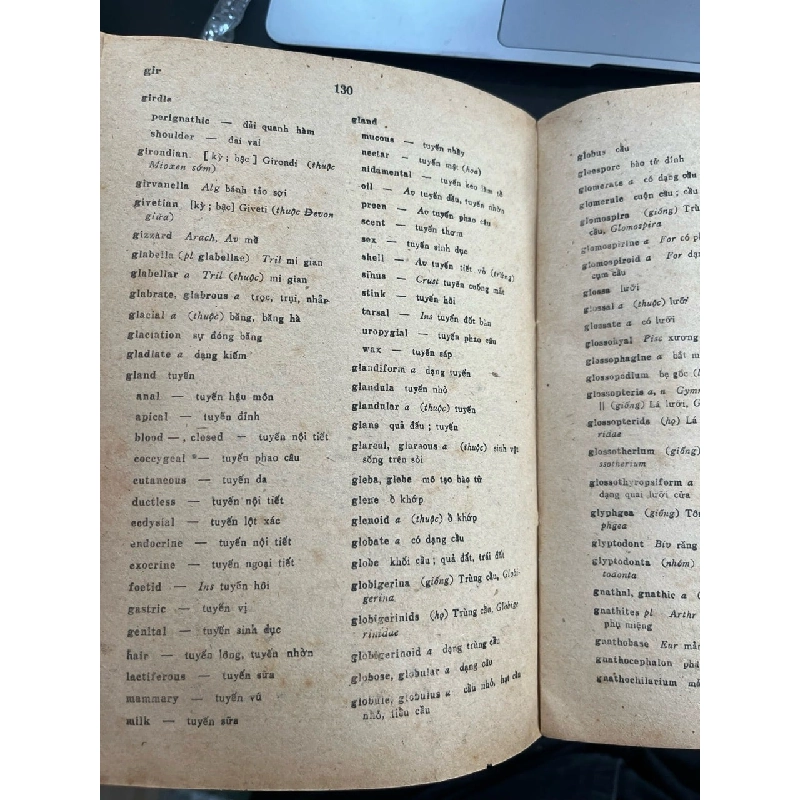 gir
130
girdle
perignathic — dải quanh hàm
shoulder — đai vai
girondian [kỳ; bậc] Girondi (thuộc
Mioxen sớm)
girvanella Alg bánh tảo sợi
givetian [kỳ; bậc] Giveti (thuộc Đevon
giữa)
gizzard Arach, Av mề
glabella (pl glabellae) Tril mi gian
glabellar a Tril (thuộc) mi gian
glabrate, glabrous a trọc, trụi, nhẵn
glacial a (thuộc) băng, băng hà
glaciation sự đóng băng
gladiate a dạng kiếm
gland tuyến
anal — tuyến hậu môn
apical — tuyến đỉnh
blood —, closed — tuyến nội tiết
coccygeal — tuyến phao câu
cutaneous — tuyến da
ductless — tuyến nội tiết
ecdysial — tuyến lột xác
endocrine — tuyến nội tiết
exocrine — tuyến ngoại tiết
foetid — Ins tuyến hôi
gastric — tuyến vị
genital — tuyến sinh dục
hair — tuyến lông, tuyến nhờn
lactiferous — tuyến sữa
mammary — tuyến vú
milk — tuyến sữa
gland
mucous — tuyến nhầy
nectar — tuyến mật (hoa)
nidamental — tuyến kéo làm tổ
oil — Av tuyến dầu, tuyến nhờn
preen — Av tuyến phao câu
scent — tuyến thơm
sex — tuyến sinh dục
shell — Av tuyến tiết vỏ (trứng)
sinus — Crust tuyến cuống mắt
stink — tuyến hôi
tarsal — Ins tuyến đốt bàn
uropygial — tuyến phao câu
wax — tuyến sáp
glandiform a dạng tuyến
glandula tuyến nhỏ
glandular a (thuộc) tuyến
glans quả đấu; tuyến
glareal, glareous a (thuộc) sinh vật
sống trên sỏi
gleba, glebe mô tạo bào tử
glene ổ khớp
glenoid a (thuộc) ổ khớp
globate a có dạng cầu
globe khối cầu; quả đất, trái đất
globigerina (giống) Trùng cầu, Globi-
gerina
globigerinids (họ) Trùng cầu, Globige
rinidae
globigerinoid a dạng trùng cầu
globose, globular a dạng cầu
globule, globulus a cầu nhỏ, hạt cầu
nhỏ, tiểu cầu
globus cầu
gloespore bào tử dính
glomerate a có dạng cầu
glomerule cuộn cầu; cầu
glomospira (giống) Trùn
cầu, Glomospira
glomospirine a For có ph
glomospiroid a For dạn
cụm cầu
glossa lưỡi
glossal a (thuộc) lưỡi
glossate a có lưỡi
glossohyal Pisc xương
glossophagine a bắt m
glossopodium bẹ gốc (l
glossopteris a, n Gymn
|| (giống) Lá lưỡi, G
glossopterids (họ) Lá
ridae
glossotherium (giống)
ssotherium
glossothyropsiform a
dạng quai lưỡi cửa
glyphaea (giống) Tôm
phgea
glyptodont Biv răng
glyptodonta (nhóm)
todonta
gnathal, gnathic a (
gnathites pl Arthr
phụ miệng
gnathobase Eur mấ
gnathocephalon phầ
gnathochilarium mả